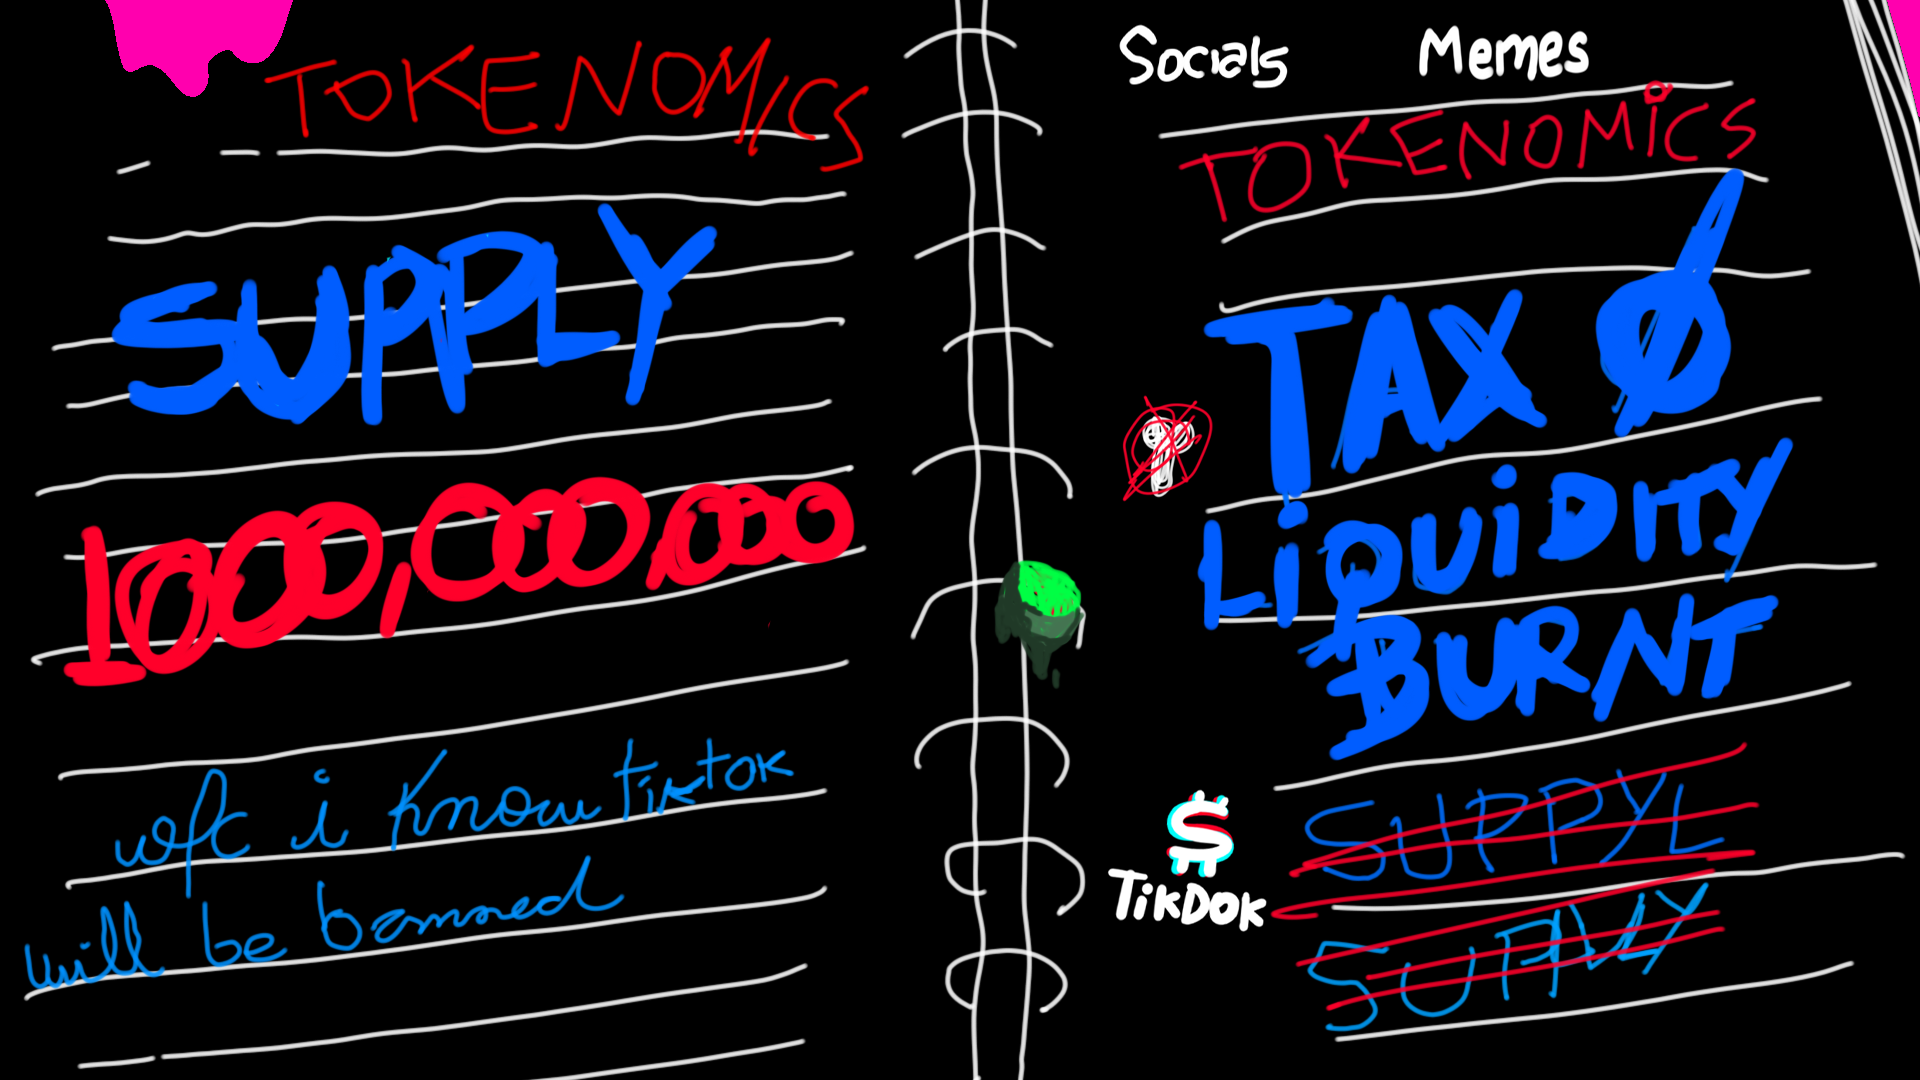 TOKENOMICS
SUPPLY
1000,000,000
wtf i know tiktok
will be banned
Socials Memes
TOKENOMiCS
TAX 0
LiQUiDITY
BURNT
$
TiKDOK
SUPPYL
SUPPLY